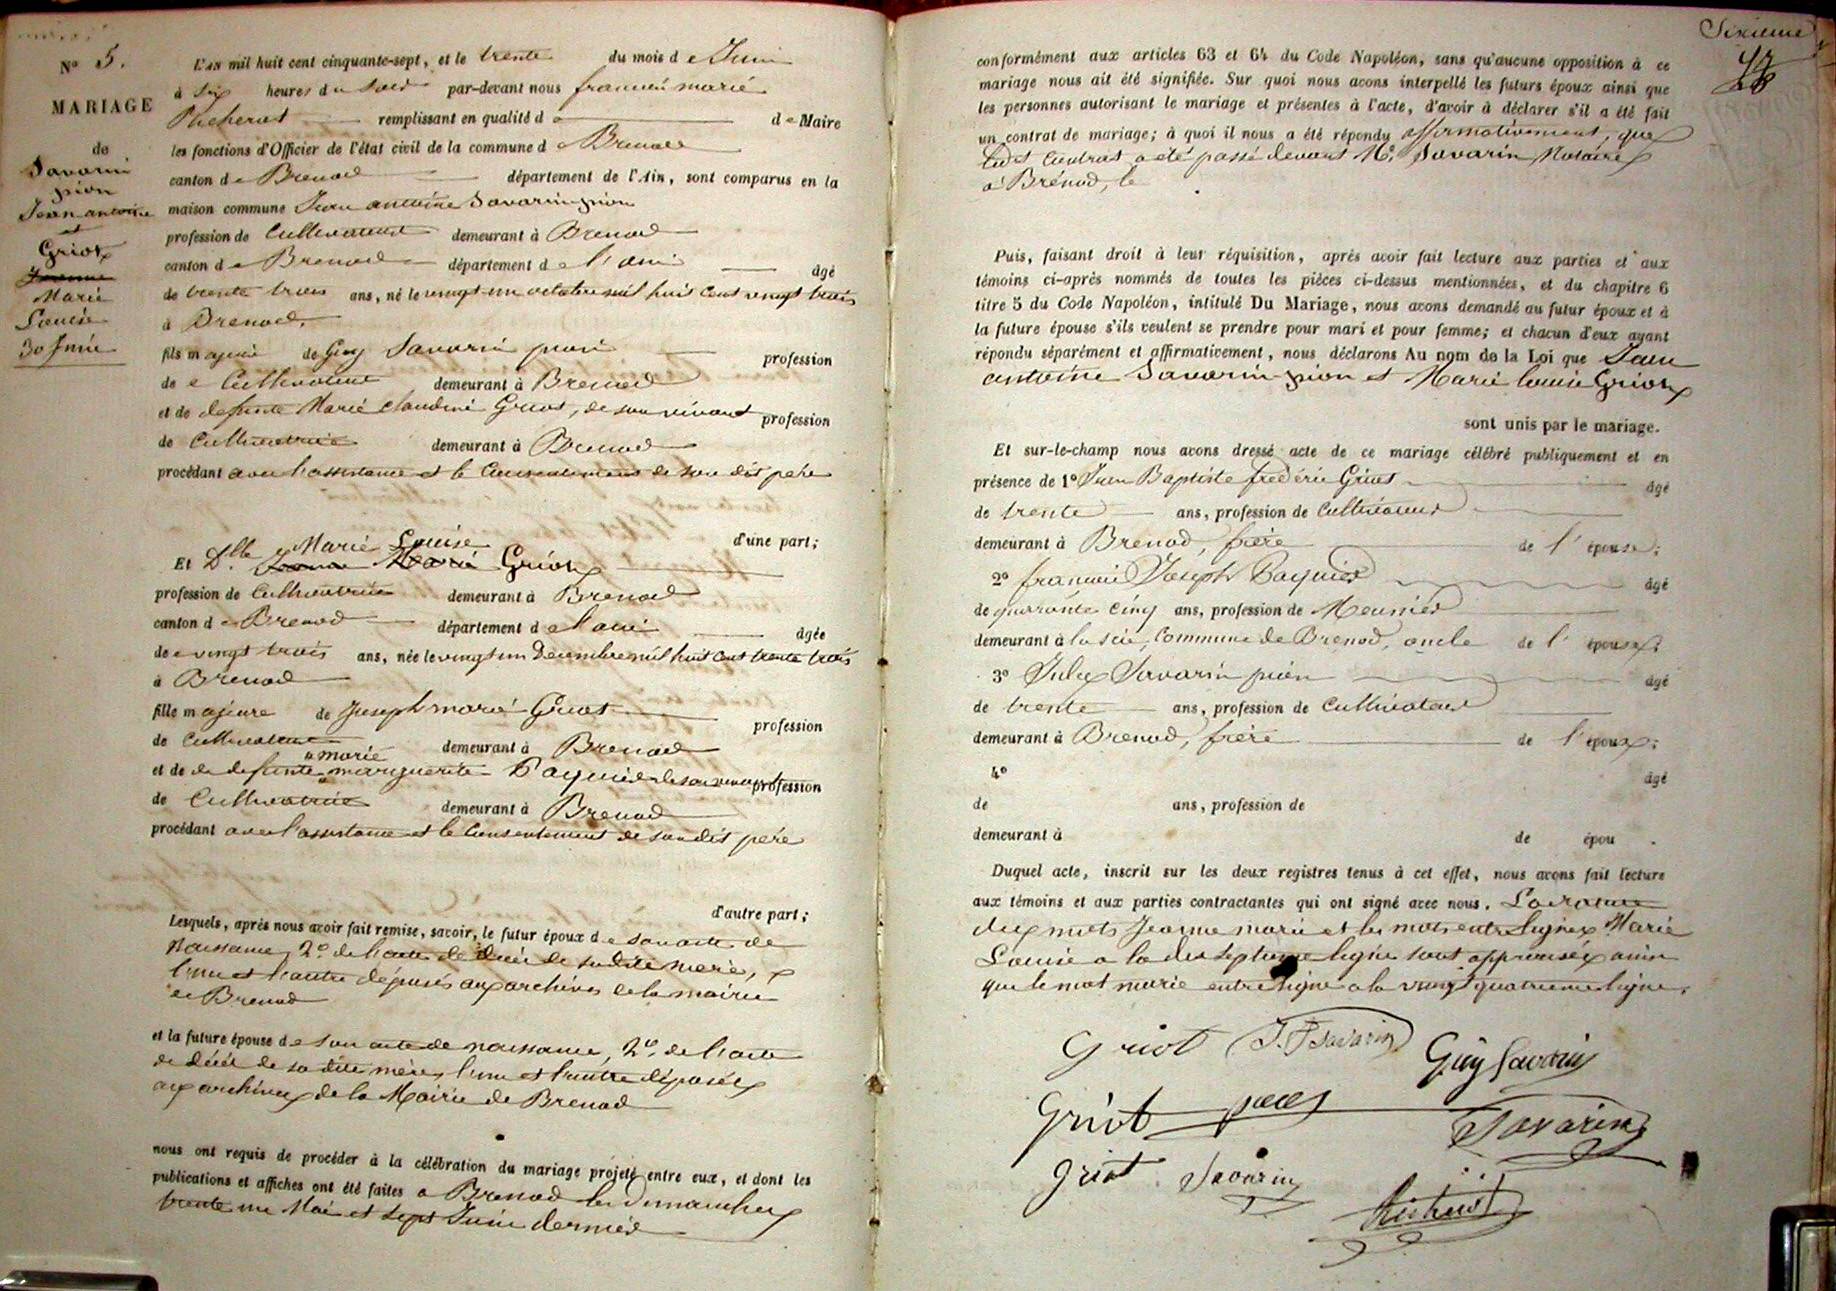 N° 5.
MARIAGE
de
Savarin
pion
Jean antoine
et
Griot
Jeanne
Marie
Louise
30 Juin
L'AN mil huit cent cinquante-sept, et le trente du mois de Juin
à six heures du soir par-devant nous françois marie
remplissant en qualité d e de Maire
les fonctions d'Officier de l'état civil de la commune de Brenod
canton de Brenod département de l'Ain, sont comparus en la
maison commune Jean antoine Savarin pion
profession de Cultivateur demeurant à Brenod
canton de Brenod département de l'ain âgé
de trente trois ans, né le vingt un octobre mil huit cent vingt trois
à Brenod.
fils majeur de Guy Savarin pion profession
de Cultivateur demeurant à Brenod
et de defunte Marie claudine Griot, de son vivant profession
de Cultivatrice demeurant à Brenod
procédant avec l'assistance et le Consentement de son dit père
d'une part;
Marie Louise
Et Dlle Jeanne Marie Griot
profession de Cultivatrice demeurant à Brenod
canton de Brenod département de l'ain âgée
de vingt trois ans, née le vingt un Decembre mil huit cent trente trois
à Brenod
fille majeure de Joseph marie Griot profession
de Cultivateur demeurant à Brenod
marie
et de defunte marguerite Paquier de son vivant profession
de Cultivatrice demeurant à Brenod
procédant avec l'assistance et le Consentement de son dit père
d'autre part;
Lesquels, après nous avoir fait remise, savoir, le futur époux de son acte de
Naissance, 2° de l'acte de décès de sa dite mère,
l'un et l'autre déposés aux archives de la mairie
de Brenod
et la future épouse de son acte de naissance, 2°. de l'acte
de décès de sa dite mère, l'un et l'autre déposés
aux archives de la Mairie de Brenod
nous ont requis de procéder à la célébration du mariage projeté entre eux, et dont les
publications et affiches ont été faites à Brenod les Dimanches
trente un Mai et sept Juin dernier
Sixieme
conformément aux articles 63 et 64 du Code Napoléon, sans qu'aucune opposition à ce
mariage nous ait été signifiée. Sur quoi nous avons interpellé les futurs époux ainsi que
les personnes autorisant le mariage et présentes à l'acte, d'avoir à déclarer s'il a été fait
un contrat de mariage; à quoi il nous a été répondu affirmativement, que
contrat a été passé devant Me. Savarin Notaire
à Brénod, le
Puis, faisant droit à leur réquisition, après avoir fait lecture aux parties et aux
témoins ci-après nommés de toutes les pièces ci-dessus mentionnées, et du chapitre 6
titre 5 du Code Napoléon, intitulé Du Mariage, nous avons demandé au futur époux et à
la future épouse s'ils veulent se prendre pour mari et pour femme; et chacun d'eux ayant
répondu séparément et affirmativement, nous déclarons Au nom de la Loi que Jean
antoine Savarin pion et Marie louise Griot
sont unis par le mariage.
Et sur-le-champ nous avons dressé acte de ce mariage célébré publiquement et en
présence de 1° Jean Baptiste frédéric Griot âgé
de trente ans, profession de Cultivateur
demeurant à Brenod, frère de l'épouse;
2° françois Joseph Paquier âgé
de quarante cinq ans, profession de Meunier
demeurant à la scie, Commune de Brenod, oncle de l'épouse;
3° Savarin pion âgé
de trente ans, profession de Cultivateur
demeurant à Brenod, frère de l'époux;
4° âgé
de ans, profession de
demeurant à de épou .
Duquel acte, inscrit sur les deux registres tenus à cet effet, nous avons fait lecture
aux témoins et aux parties contractantes qui ont signé avec nous. La rature
deux mots Jeanne marie et les mots entre lignes Marie
Louise a la dix septieme ligne sont approuvés ainsi
que le mot marie entre ligne a la vingt quatrieme ligne.
Griot Savarin Guy Savarin
Griot Savarin
Griot Savarin